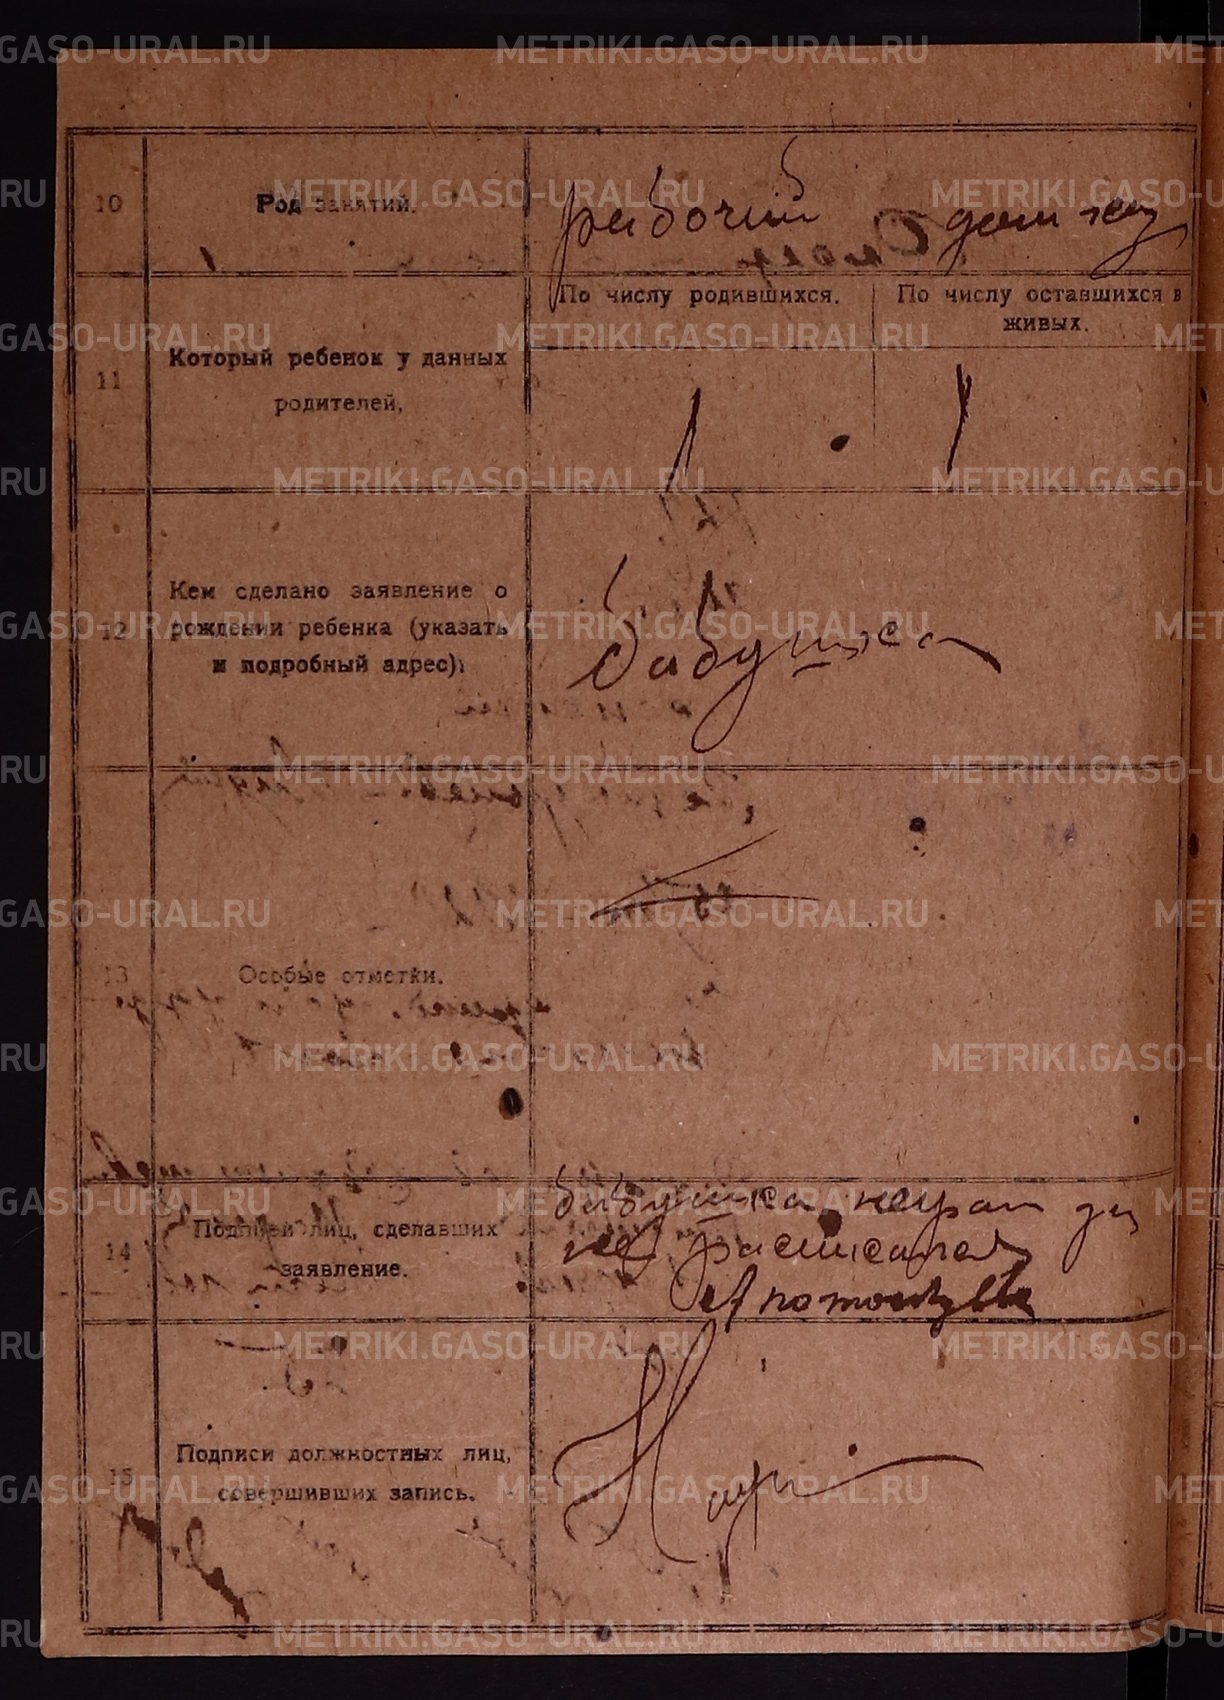 METRIKI.GASO-URAL.RU
10
Род занятий.
рабочий
дом хоз
11
Который ребенок у данных
родителей,
По числу родившихся.
По числу оставшихся в
живых.
1
1
12
Кем сделано заявление о
рождении ребенка (указать
и подробный адрес).
бабушка
13
Особые отметки.
14
Подписи лиц, сделавших
заявление.
бабушка неграм за
нее расписался
15
Подписи должностных лиц,
совершивших запись.